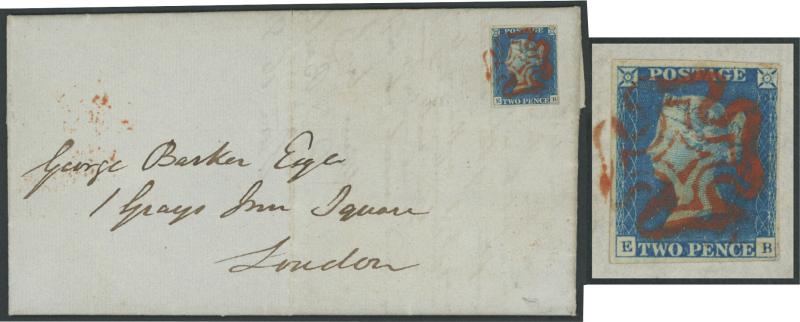 POSTAGE
E TWO PENCE B
George Barker Esqre
1 Grays Inn Square
London
POSTAGE
E TWO PENCE B